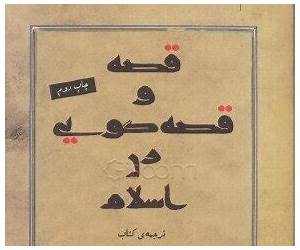 قصه
چاپ دوم
و
قصه گویی
در
اسلام
ترجمه‌ی کتاب